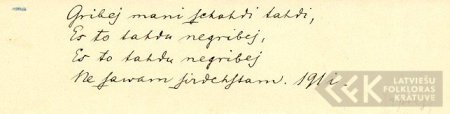 Gribej mani schahdi tahdi,
Es to tahdu negribej,
Es to tahdu negribej
Ne sawam sirdehstam. 191i.
LATVIEŠU
FOLKLORAS
KRĀTUVE